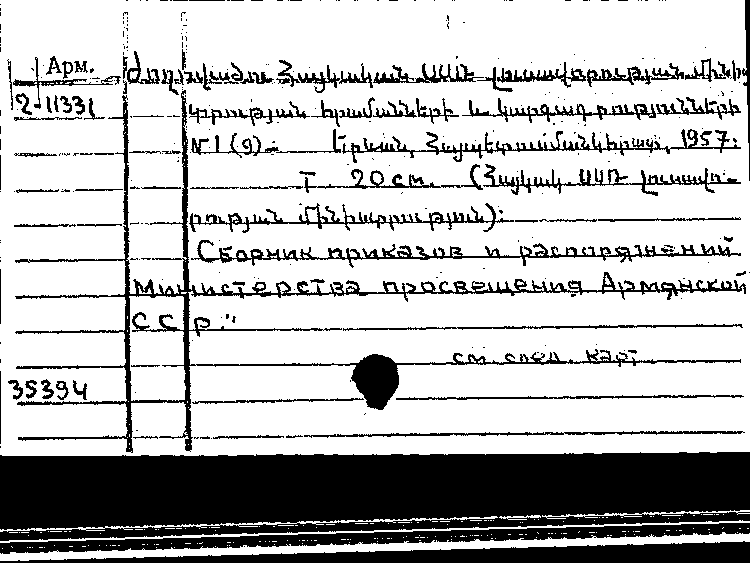 Арм.
2-11331
Ժողովածու Հայկական ՍՍՌ լուսավորության մինիս
տրության հրամանների և կարգադրությունների
№1 (9).- Երևան, Հայպետուսմանկհրատ, 1957:
Т. 20 см. (Հայկակ. ՍՍՌ լուսավո-
րության մինիստրություն):
Сборник приказов и распоряжений
Министерства просвещения Армянской
ССР."
см. след. карт
35394